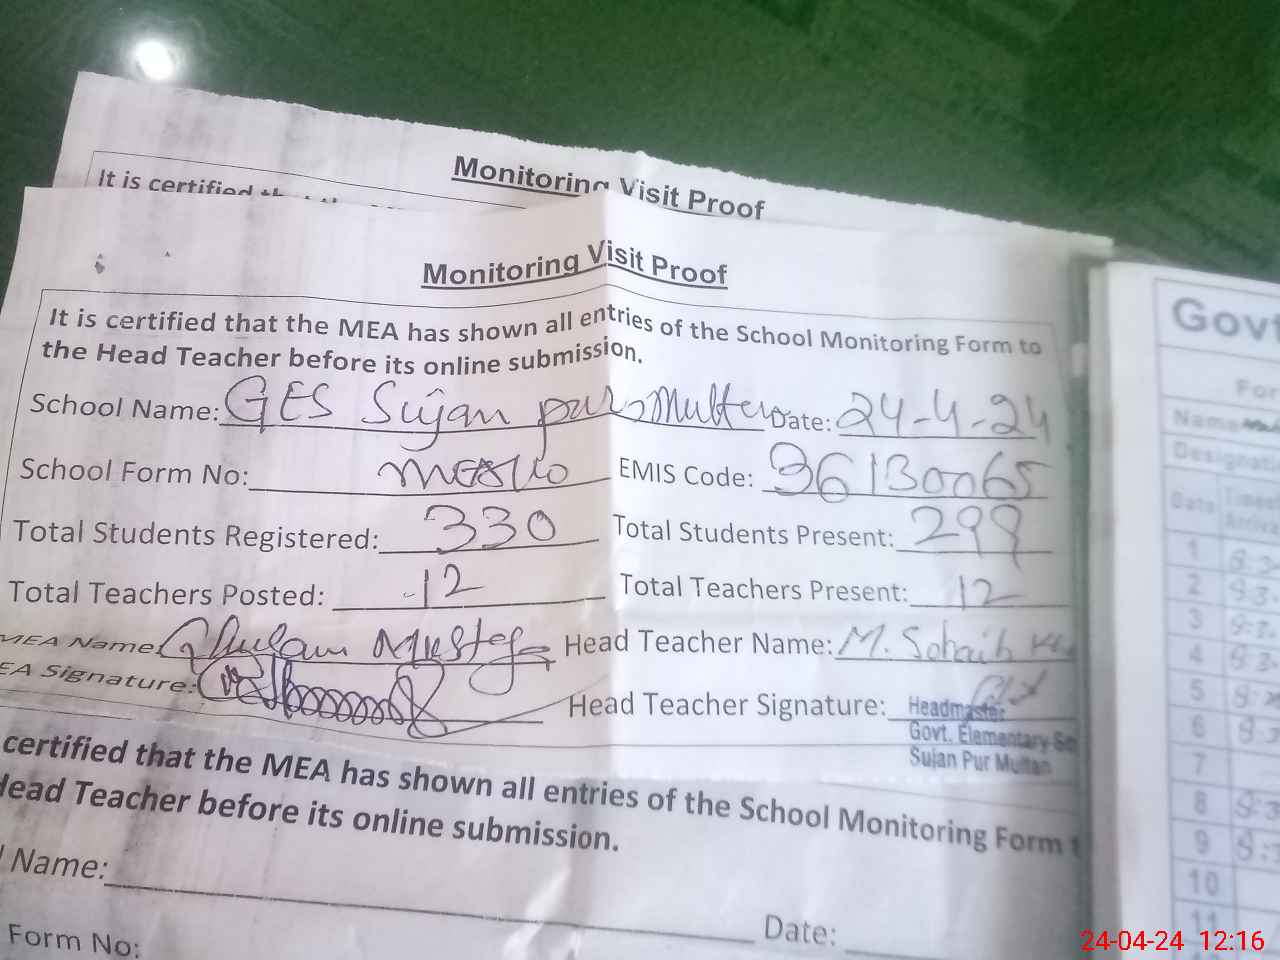 Monitoring Visit Proof
It is certified
Monitoring Visit Proof
It is certified that the MEA has shown all entries of the School Monitoring Form to
the Head Teacher before its online submission.
School Name: GES Sujan pur Multan Date: 24-4-24
School Form No: EMIS Code: 36130065
Total Students Registered: 330 Total Students Present: 299
Total Teachers Posted: 12 Total Teachers Present: 12
MEA Name: Ghulam Mustafa Head Teacher Name: M. Sohaib
EA Signature: Head Teacher Signature:
Headmaster
Govt. Elementary Sc
Sujan Pur Multan
certified that the MEA has shown all entries of the School Monitoring Form t
Head Teacher before its online submission.
Name:
Date:
Form No:
Govt
For
Name
Designati
Date Times
Arriva
1 8:3
2 8:3
3 8:3
4 8:3
5
6 8:3
7
8 8:3
9 8:3
10
11
24-04-24 12:16